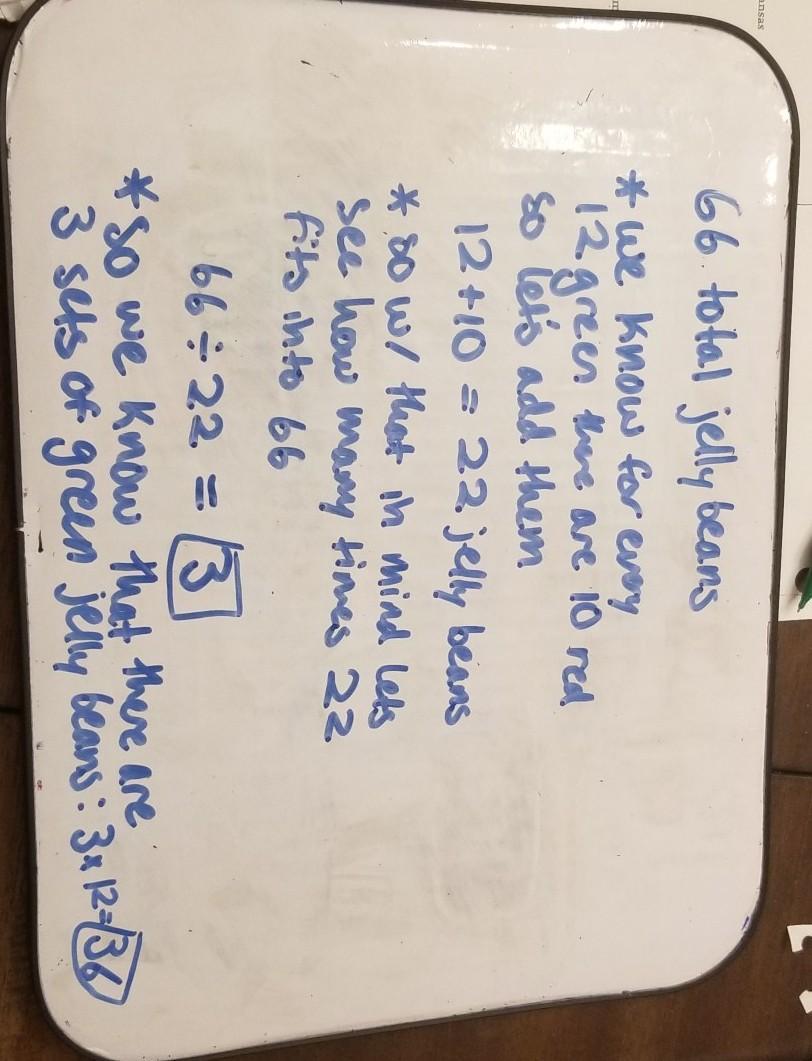 66 total jelly beans
* we know for every
12 green there are 10 red
so let's add them
12 + 10 = 22 jelly beans
* so w/ that in mind lets
see how many times 22
fits into 66
66 ÷ 22 = 3
* So we know that there are
3 sets of green jelly beans: 3 x 12 = 36
ansas